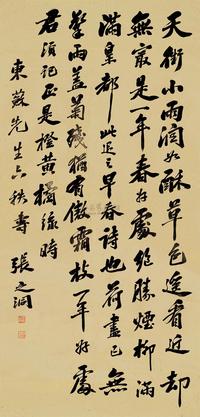 天街小雨润如酥草色遥看近却
無最是一年春好處絕勝煙柳滿
滿皇都此退之早春詩也荷盡已無
擎雨蓋菊殘猶有傲霜枝一年好處
君須記正是橙黄橘綠時
東蘇先生六秩壽 張之洞